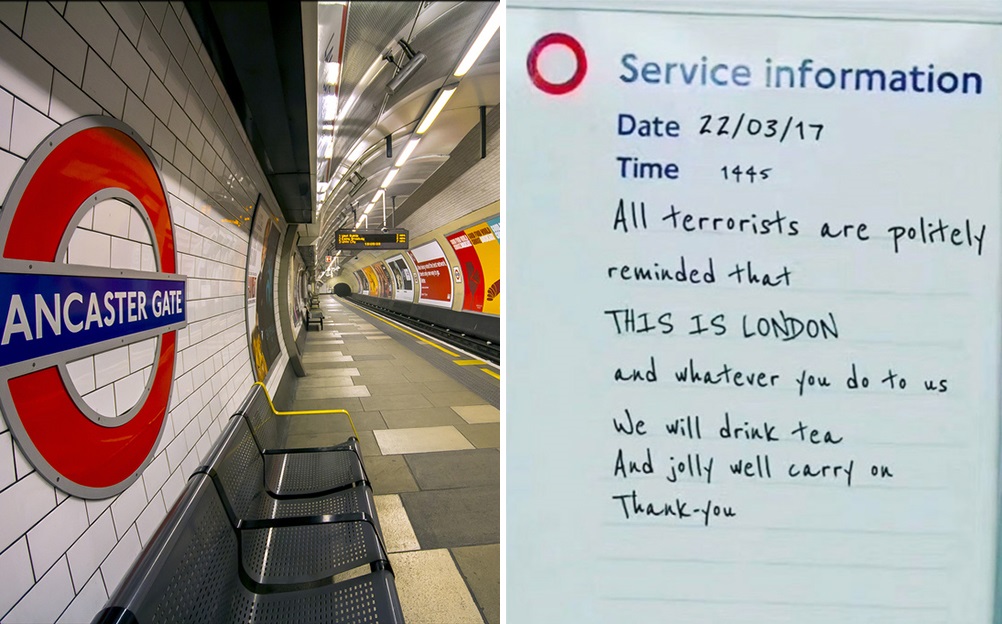 ANCASTER GATE
Service information
Date 22/03/17
Time 1445
All terrorists are politely
reminded that
THIS IS LONDON
and whatever you do to us
We will drink tea
And jolly well carry on
Thank-you